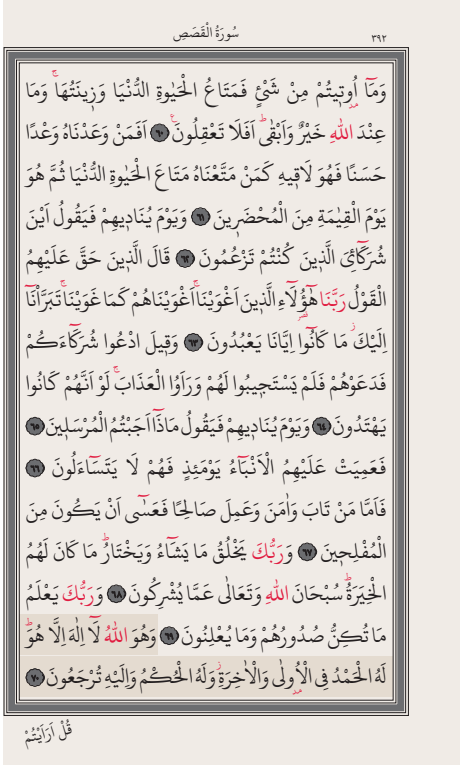 سُورَةُ الْقَصَصِ
٣٩٢
وَمَٓا اُو۫ت۪يتُمْ مِنْ شَيْءٍ فَمَتَاعُ الْحَيٰوةِ الدُّنْيَا وَز۪ينَتُهَاۚ وَمَا
عِنْدَ اللّٰهِ خَيْرٌ وَاَبْقٰىۜ اَفَلَا تَعْقِلُونَ۟ ﴿٦٠﴾ اَفَمَنْ وَعَدْنَاهُ وَعْدًا
حَسَنًا فَهُوَ لَاق۪يهِ كَمَنْ مَتَّعْنَاهُ مَتَاعَ الْحَيٰوةِ الدُّنْيَا ثُمَّ هُوَ
يَوْمَ الْقِيٰمَةِ مِنَ الْمُحْضَر۪ينَ ﴿٦١﴾ وَيَوْمَ يُنَاد۪يهِمْ فَيَقُولُ اَيْنَ
شُرَكَٓائِيَ الَّذ۪ينَ كُنْتُمْ تَزْعُمُونَ ﴿٦٢﴾ قَالَ الَّذ۪ينَ حَقَّ عَلَيْهِمُ
الْقَوْلُ رَبَّنَا هٰٓؤُ۬لَٓاءِ الَّذ۪ينَ اَغْوَيْنَاۚ اَغْوَيْنَاهُمْ كَمَا غَوَيْنَاۚ تَبَرَّأْنَٓا
اِلَيْكَۘ مَا كَانُٓوا اِيَّانَا يَعْبُدُونَ ﴿٦٣﴾ وَق۪يلَ ادْعُوا شُرَكَٓاءَكُمْ
فَدَعَوْهُمْ فَلَمْ يَسْتَج۪يبُوا لَهُمْ وَرَاَوُا الْعَذَابَۚ لَوْ اَنَّهُمْ كَانُوا
يَهْتَدُونَ ﴿٦٤﴾ وَيَوْمَ يُنَاد۪يهِمْ فَيَقُولُ مَاذَٓا اَجَبْتُمُ الْمُرْسَل۪ينَ ﴿٦٥﴾
فَعَمِيَتْ عَلَيْهِمُ الْاَنْبَٓاءُ يَوْمَئِذٍ فَهُمْ لَا يَتَسَٓاءَلُونَ ﴿٦٦﴾
فَاَمَّا مَنْ تَابَ وَاٰمَنَ وَعَمِلَ صَالِحًا فَعَسٰٓى اَنْ يَكُونَ مِنَ
الْمُفْلِح۪ينَ ﴿٦٧﴾ وَرَبُّكَ يَخْلُقُ مَا يَشَٓاءُ وَيَخْتَارُۜ مَا كَانَ لَهُمُ
الْخِيَرَةُۜ سُبْحَانَ اللّٰهِ وَتَعَالٰى عَمَّا يُشْرِكُونَ ﴿٦٨﴾ وَرَبُّكَ يَعْلَمُ
مَا تُكِنُّ صُدُورُهُمْ وَمَا يُعْلِنُونَ ﴿٦٩﴾ وَهُوَ اللّٰهُ لَٓا اِلٰهَ اِلَّا هُوَۜ
لَهُ الْحَمْدُ فِي الْاُو۫لٰى وَالْاٰخِرَةِۘ وَلَهُ الْحُكْمُ وَاِلَيْهِ تُرْجَعُونَ ﴿٧٠﴾
قُلْ اَرَاَيْتُمْ